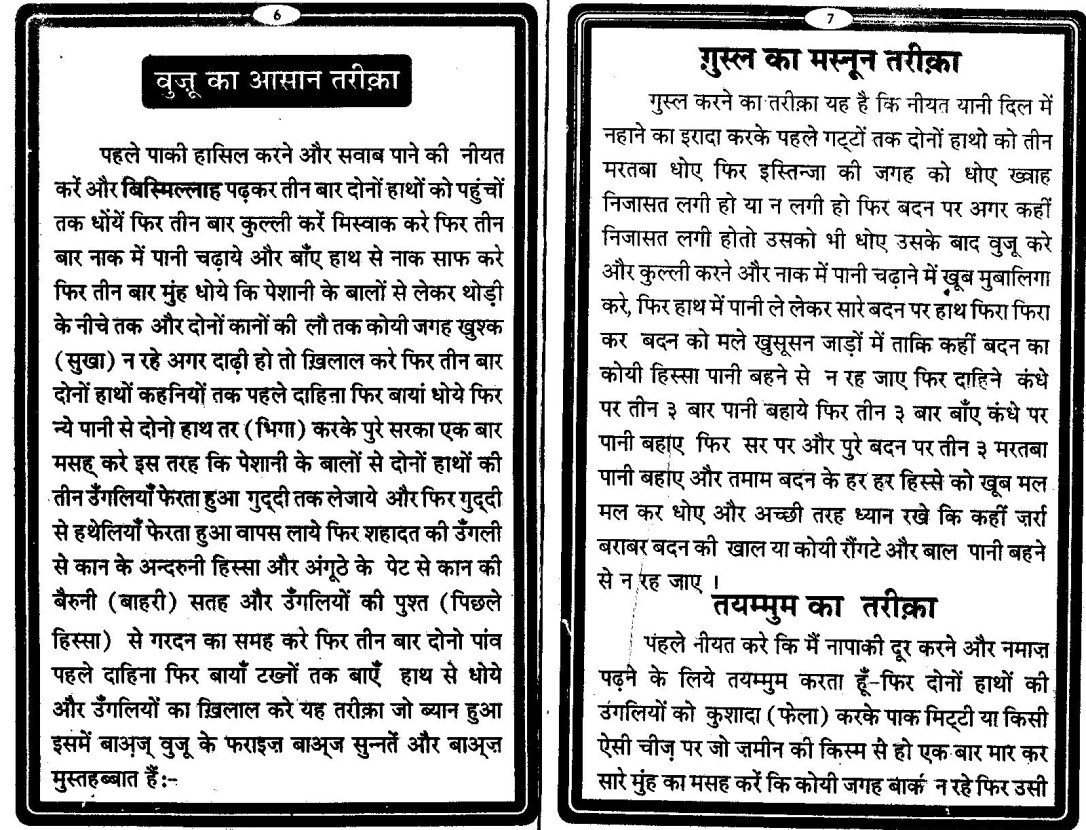 6
वुज़ू का आसान तरीक़ा
पहले पाकी हासिल करने और सवाब पाने की नीयत
करें और बिस्मिल्लाह पढ़कर तीन बार दोनों हाथों को पहुंचों
तक धोंयें फिर तीन बार कुल्ली करें मिस्वाक करे फिर तीन
बार नाक में पानी चढ़ाये और बाँए हाथ से नाक साफ करे
फिर तीन बार मुंह धोये कि पेशानी के बालों से लेकर थोड़ी
के नीचे तक और दोनों कानों की लौ तक कोयी जगह खुश्क
(सुखा) न रहे अगर दाढ़ी हो तो ख़िलाल करे फिर तीन बार
दोनों हाथों कहनियों तक पहले दाहिना फिर बायां धोये फिर
न्ये पानी से दोनो हाथ तर (भिगा) करके पुरे सरका एक बार
मसह् करे इस तरह कि पेशानी के बालों से दोनों हाथों की
तीन उँगलियाँ फेरता हुआ गुद्दी तक लेजाये और फिर गुद्दी
से हथेलियाँ फेरता हुआ वापस लाये फिर शहादत की उँगली
से कान के अन्दरुनी हिस्सा और अंगूठे के पेट से कान की
बैरुनी (बाहरी) सतह और उँगलियों की पुश्त (पिछले
हिस्सा) से गरदन का समह करे फिर तीन बार दोनो पांव
पहले दाहिना फिर बायाँ टख्नों तक बाएँ हाथ से धोये
और उँगलियों का ख़िलाल करे यह तरीक़ा जो ब्यान हुआ
इसमें बाअ्ज़ वुजू के फराइज़ बाअ्ज़ सुन्नतें और बाअ्ज़
मुस्तहब्बात हैं:-
7
ग़ुस्ल का मस्नून तरीक़ा
गुस्ल करने का तरीक़ा यह है कि नीयत यानी दिल में
नहाने का इरादा करके पहले गट्टों तक दोनों हाथो को तीन
मरतबा धोए फिर इस्तिन्जा की जगह को धोए ख्वाह
निजासत लगी हो या न लगी हो फिर बदन पर अगर कहीं
निजासत लगी होतो उसको भी धोए उसके बाद वुजू करे
और कुल्ली करने और नाक में पानी चढ़ाने में खूब मुबालिगा
करे, फिर हाथ में पानी ले लेकर सारे बदन पर हाथ फिरा फिरा
कर बदन को मले खुसूसन जाड़ों में ताकि कहीं बदन का
कोयी हिस्सा पानी बहने से न रह जाए फिर दाहिने कंधे
पर तीन ३ बार पानी बहाये फिर तीन ३ बार बाँए कंधे पर
पानी बहाए फिर सर पर और पुरे बदन पर तीन ३ मरतबा
पानी बहाए और तमाम बदन के हर हर हिस्से को खूब मल
मल कर धोए और अच्छी तरह ध्यान रखे कि कहीं ज़र्रा
बराबर बदन की खाल या कोयी रौंगटे और बाल पानी बहने
से न रह जाए ।
तयम्मुम का तरीक़ा
पहले नीयत करे कि मैं नापाकी दूर करने और नमाज़
पढ़ने के लिये तयम्मुम करता हूँ-फिर दोनों हाथों की
उंगलियों को कुशादा (फेला) करके पाक मिट्टी या किसी
ऐसी चीज़ पर जो ज़मीन की किस्म से हो एक बार मार कर
सारे मुंह का मसह करें कि कोयी जगह बाक न रहे फिर उसी